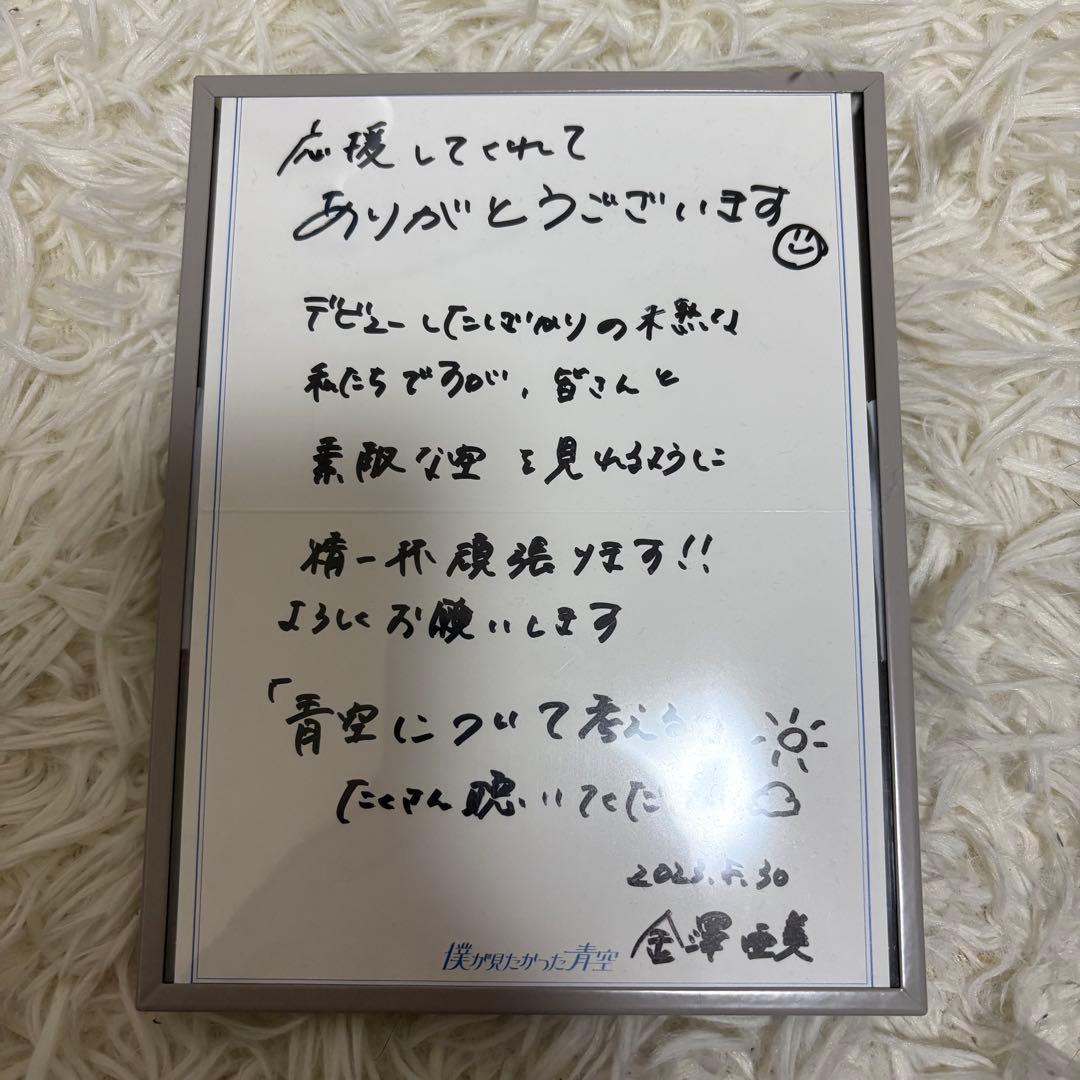 応援してくれて
ありがとうございます
デビューしたばかりの未熟な
私たちですが、皆さんと
素敵な空を見れるように
精一杯頑張ります!!
よろしくお願いします
「青空について考える
たくさん聴いてくだ
2023.5.30
金澤亜美
僕が見たかった青空